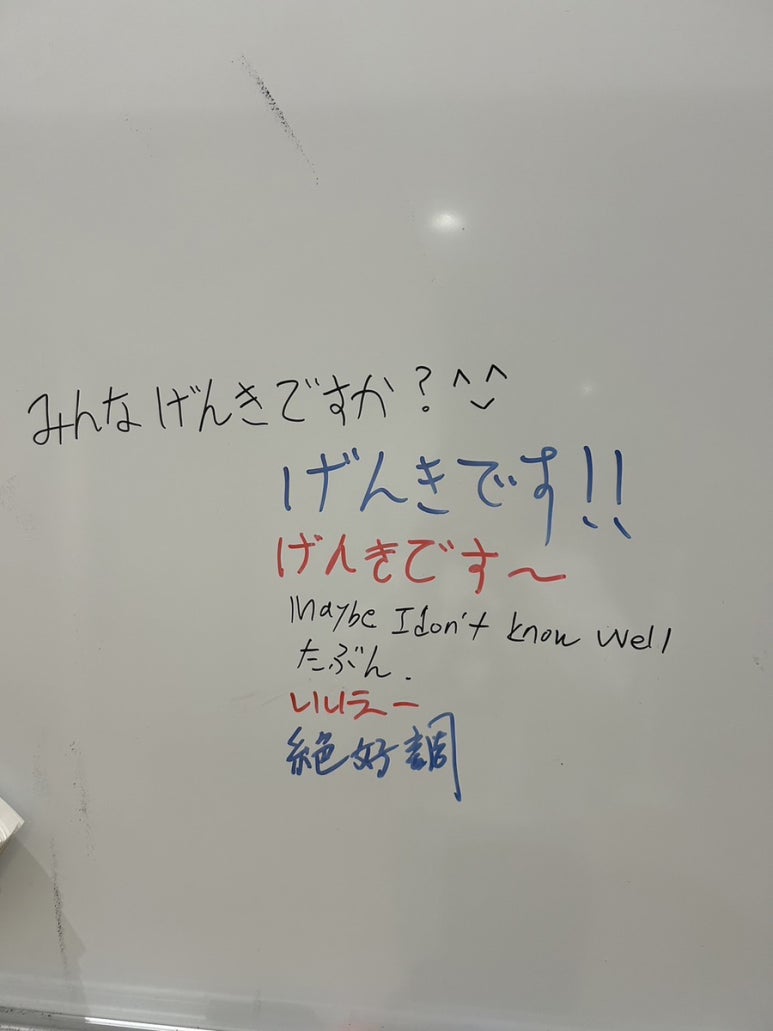 みんなげんきですか？^◡^
げんきです!!
げんきです〜
Maybe I don't know well
たぶん.
いいえー
絶好調